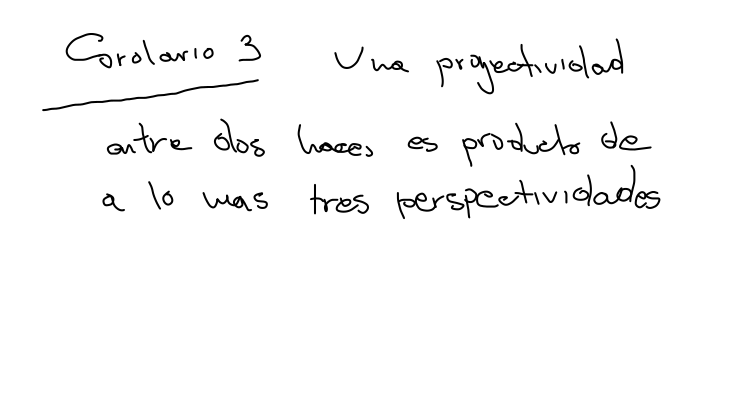 Corolario 3 Una proyectividad
entre dos haces es producto de
a lo mas tres perspectividades